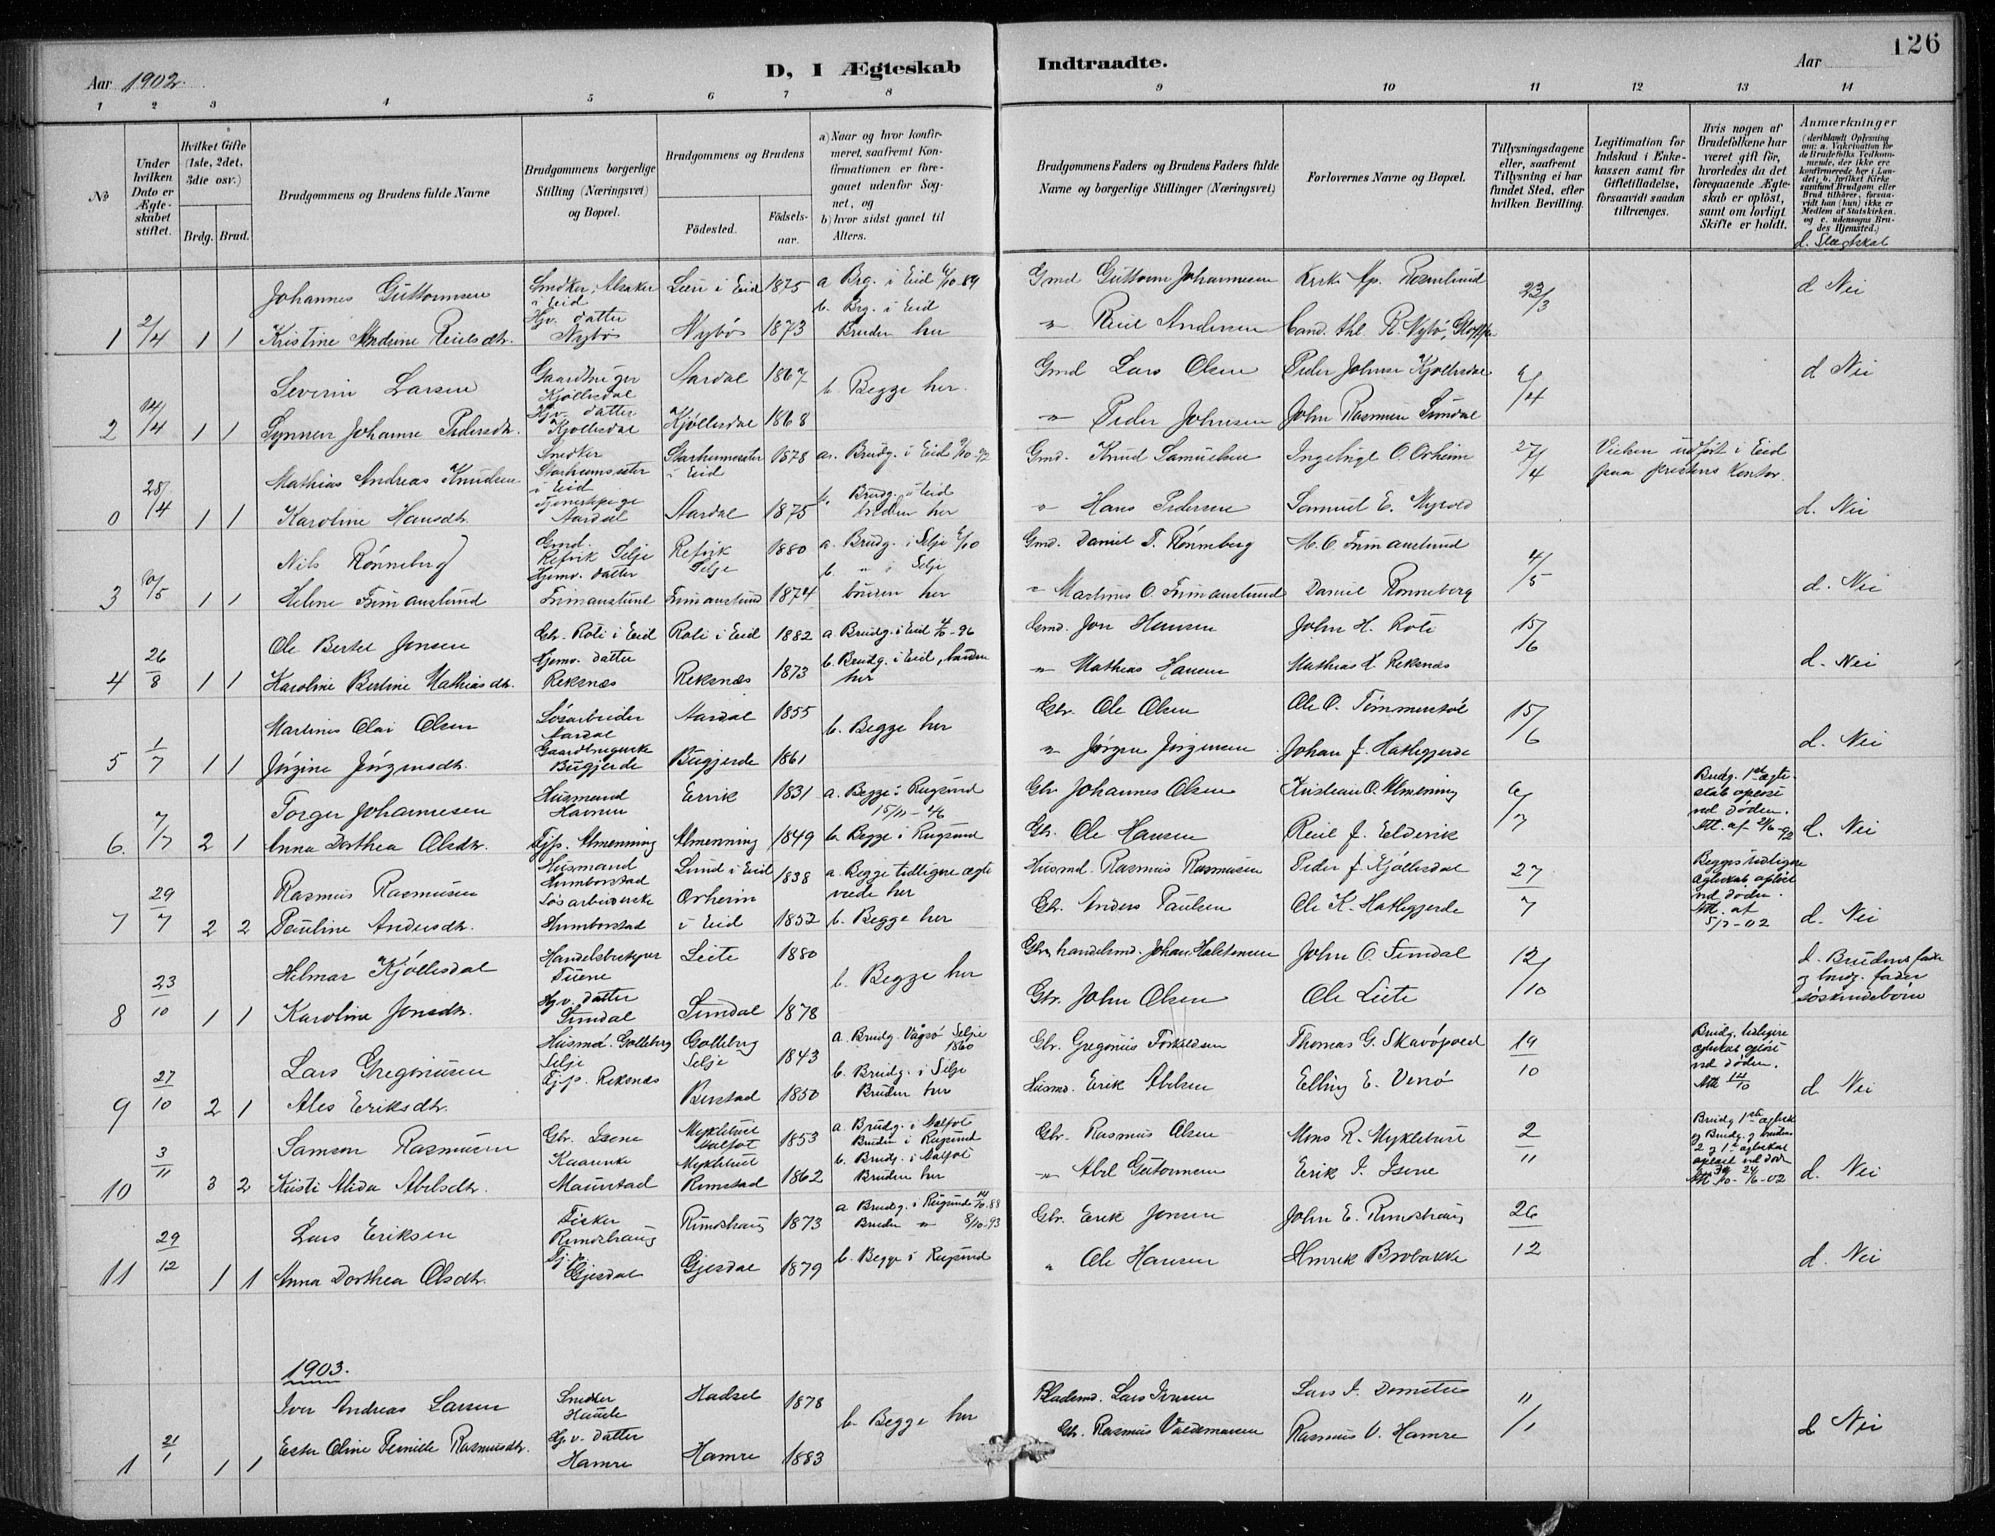 126
Aar 1902.
D, I Ægteskab
Indtraadte.
Aar
1 2 3 4 5 6 7 8 9 10 11 12 13 14
No
Under hvilken Dato er Ægteskabet stiftet.
Hvilket Gifte (1ste, 2det, 3die osv.)
Brdg. Brud.
Brudgommens og Brudens fulde Navne
Brudgommens borgerlige Stilling (Næringsvei) og Bopæl.
Brudgommens og Brudens
Fødested.
Fødselsaar.
a) Naar og hvor konfirmeret, saafremt Konfirmationen er foregaaet udenfor Sognet, og
b) hvor sidst gaaet til Alters.
Brudgommens Faders og Brudens Faders fulde Navne og borgerlige Stillinger (Næringsvei)
Forlovernes Navne og Bopæl.
Tillysningsdagene eller, saafremt Tillysning ei har fundet Sted, efter hvilken Bevilling.
Legitimation for Indskud i Enkekassen samt for Giftetilladelse, forsaavidt saadan tiltrænges.
Hvis nogen af Brudefolkene har været gift før, hvorledes da det foregaaende Ægteskab er opløst, samt om lovligt Skifte er holdt.
Anmærkninger
(deriblandt Oplysning om: a. Vaksination for de Brudefolks Vedkommende, der ikke ere konfirmerede her i Landet; b. hvilket Kirkesamfund Brudgom eller Brud tilhører, forsaavidt han (hun) ikke er Medlem af Statskirken. og c. udensogns Brudes Hjemsted.)
d. Slægtskab
1 2/4 1 1 Johannes Guttormsen
Snedker, i Eid
Leri i Eid 1875
a Brg. i Eid
b. Brg. i Eid
Gmd Guttorm Johannesen
23/3
d Nei
Kristine Andrine Reielsdtr.
Hjv. datter Nybø
Nybø 1873
Bruden her
" Reiel Andersen
Cand. thl. R. Nybø,
2 14/4 1 1 Severin Larsen
Gaardbruger Kjøllesdal
Aardal 1867
b Begge her.
Gmd Lars Olsen
Peder Johnsen Kjøllesdal
6/4
d Nei
Synneva Johanne Pedersdtr.
Hjv. datter Kjøllesdal
Kjøllesdal 1868
" Peder Johnsen
John Rasmusen Sundal
0 28/4 1 1 Mathias Andreas Knudsen
Snedker Starheimsæter i Eid
Starheimsæter i Eid 1878
a. Brudg. i Eid
Gmd. Knud Samuelsen
27/4
Vielsen udført i Eid paa prestens Kontor.
Karoline Hansdtr.
Tjenestepige Aardal
Aardal 1875
b. Brudg. i Eid bruden her
" Hans Pedersen
Samuel E. Myrold
d. Nei
3 10/5 1 1 Nils Rønneberg
Gmd. Refvik Selje
Refvik Selje 1880
a. Brudg. i Selje
b. " i Selje
Gmd. Daniel T. Rønneberg
M. O. Frimanslund
4/5
Helene Frimanslund
Hjemv. datter Frimanslund
Frimanslund 1874
bruden her
" Martinus O. Frimanslund
Daniel Rønneberg
d. Nei
4 26/8 1 1 Ole Bertel Jonsen
Gbr. Roti i Eid
Roti i Eid 1882
a Brudg. i Eid
Gmd. Jon Hansen
John H. Roti
15/6
Karoline Bertine Mathiasdtr.
Hjemv. datter Reksnæs
Reksnæs 1873
b. Brudg. i Eid, bruden her
" Mathias Hansen
Mathias H. Reksnæs
d. Nei
5 1/7 1 1 Martinus Olai Olsen
Løsarbeider Aardal
Aardal 1855
b. Begge her
Gbr. Ole Olsen
Ole O. Tømmerstøl
15/6
Jørgine Jørgensdtr.
Gaardbrugerske Bugjerde
Bugjerde 1861
" Jørgen Jørgensen
Johan J. Hatlegjerde
d. Nei
6. 7/7 2 1 Torger Johannesen
Husmand Havnen
Ervik 1831
a. Begge i Rugsund
Gbr Johannes Olsen
Kristian O. Almenning
6/7
Brudg. 1ste ægteskab opløst ved døden.
d. Nei
Anna Dorthea Olsdtr.
Tjp. Almenning
Almenning 1849
b. Begge i Rugsund
Gbr. Ole Hansen
Reiel J. Eldevik
7 29/7 2 2 Rasmus Rasmusen
Husmand Humborstad
Lund i Eid 1838
a. Begge tidligere ægteviede her
Husmd. Rasmus Rasmusen
Peder J. Kjøllesdal
27/7
Begges tidligere ægteskab opløst ved døden. Att. af 5/7-02
Pauline Andersdtr.
Løsarbeiderske Humborstad
Orheim i Eid 1852
b. Begge her
Gbr. Anders Paulsen
Ole K. Hatlegjerde
d. Nei
8 23/10 1 1 Helmar Kjøllesdal
Handelsbetjent
Leite 1880
b. Begge her
Gbr. handelsmd. Johan Halstensen
John O. Sundal
12/10
d. Brudens fader og brudg. fader søskendebørn
Karoline Jonsdtr.
Hjv. datter Sundal
Sundal 1878
Gbr. John Olsen
Ole Leite
9 27/10 2 1 Lars Gregoriusen
Husmd. Golleberg Selje
Golleberg Selje 1843
a. Brudg. Vågsø Selje 1860
b. Brudg. i Selje
Gbr. Gregorius Torkildsen
Thomas G. Skavøpoll
19/10
Brudg. tidligere ægteskab opløst ved døden.
Ales Eriksdtr.
Tjp. Reksnæs
Berstad 1850
Bruden her
Husmd. Erik Abelsen
Elling E. Venø
d. Nei
10 3/11 3 2 Samson Rasmusen
Gbr. Isene
Myklebust Aalfot 1853
a. Brudg. i Aalfot Bruden i Rugsund
b. Brudg. i Aalfot
Gbr. Rasmus Olsen
Mons R. Myklebust
2/11
Kristi Alida Abelsdtr.
Kaarenke Maurstad
Myklebust Rimstad 1862
Bruden her
" Abel Guttormsen
Erik I. Isene
d. Nei
11 29/12 1 1 Lars Eriksen
Fisker Rundehaug
Rundehaug 1873
a Brudg. i Rugsund
Bruden " 8/10-93
Gbr. Erik Jonsen
John E. Rundehaug
26/12
Anna Dorthea Olsdtr.
Tjp. Gjesdal
Gjesdal 1879
b. Begge i Rugsund
" Ole Hansen
Henrik Brobakke
d. Nei
1903.
1 21/1 1 1 Iver Andreas Larsen
Snedker
Hadsel 1878
b. Begge her
Pladsmd. Lars Iversen
11/1
d Nei
Ester Oline Pernille Rasmusdtr.
Hjv. datter Hamre
Hamre 1883
Gb. Rasmus Valdemarsen
Rasmus V. Hamre